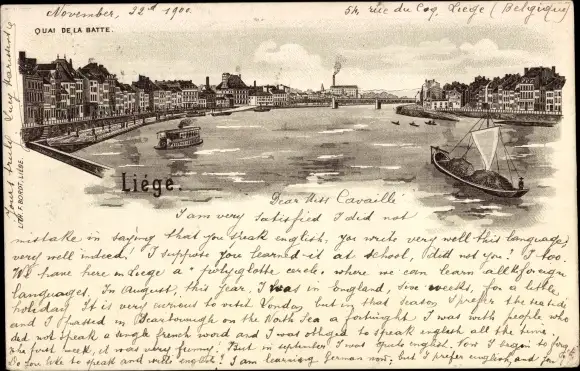 November, 22d 1900.
54, rue du Coq, Liege (Belgique)
QUAI DE LA BATTE.
Liége.
LITH. F. BOROT, LIÉGE.
Yours truly
Dear Miss Cavaillé
I am very satisfied I did not
mistake in saying that you speak english, you write very well this language,
very well indeed! I suppose you learned it at school, did not you? I too.
We have here in Liege a "polyglotte circle" where we can learn all foreign
languages. In August, this year, I was in England, five weeks, for a little
holiday. It is very curious to visit London, but in that season I prefer the seaside
and I passed in Scarborough on the North Sea a fortnight. I was with people who
did not speak a single french word and I was obliged to speak english all the time.
The first week, it was very funny. But in september I was quite english. Now I begin to forget
Do you like to speak and write english? I am learning German now, but I prefer english, and you